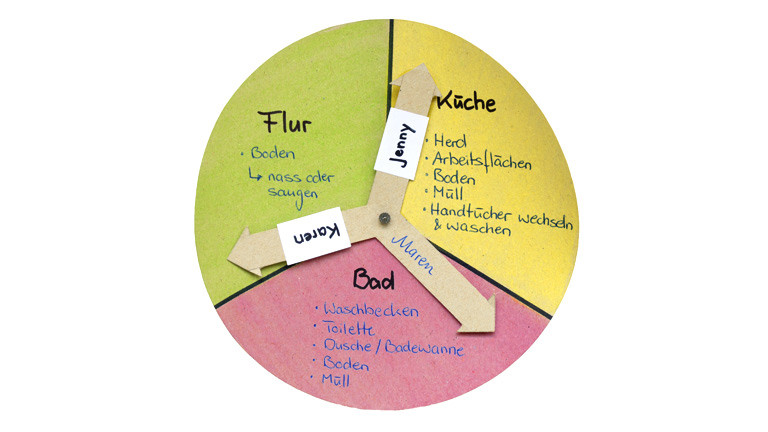 Flur
• Boden
↳ nass oder
saugen
Küche
• Herd
• Arbeitsflächen
• Boden
• Müll
• Handtücher wechseln
& waschen
Jenny
Karen
Maren
Bad
• Waschbecken
• Toilette
• Dusche/Badewanne
• Boden
• Müll